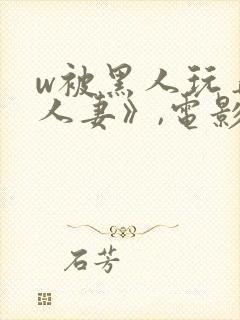 w被黑人玩
人妻》,電影
石芳